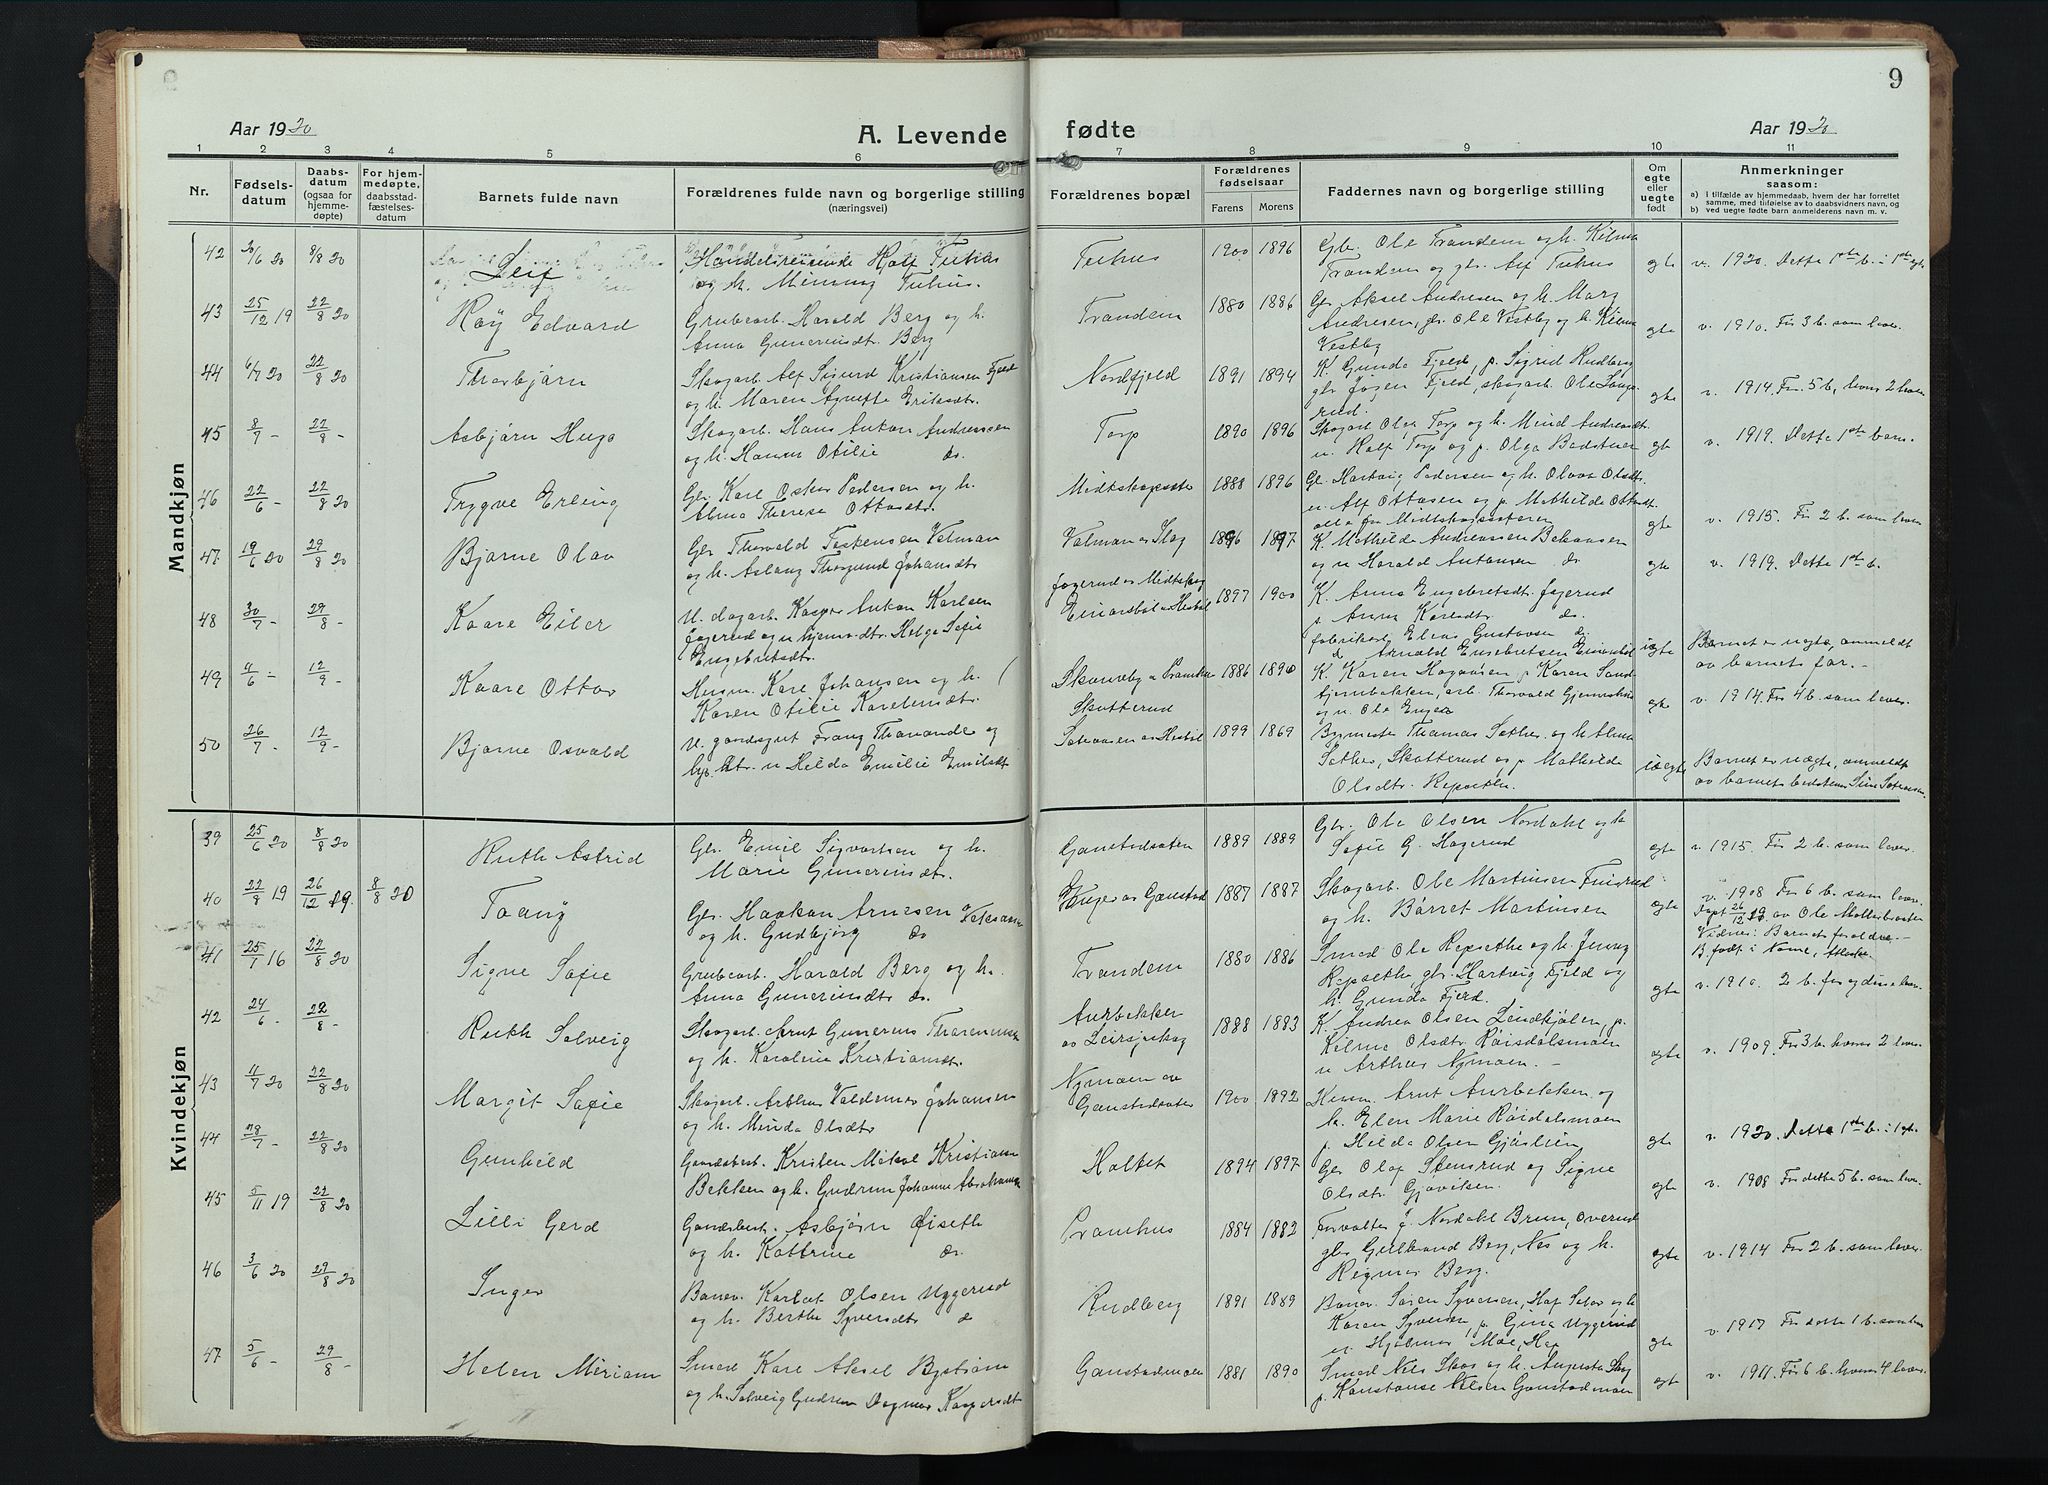 9
Aar 1920
A. Levende
fødte
Aar 1920
1 2 3 4 5 6 7 8 9 10 11
Nr.
Fødselsdatum
Daabsdatum (ogsaa for hjemmedøpte)
For hjemmedøpte, daabsstadfæstelsesdatum
Barnets fulde navn
Forældrenes fulde navn og borgerlige stilling
(næringsvei)
Forældrenes bopæl
Forældrenes fødselsaar
Farens
Morens
Faddernes navn og borgerlige stilling
Om egte eller uegte født
Anmerkninger
saasom:
a) i tilfælde av hjemmedaab, hvem der har forrettet samme, med tilføielse av to daabsvidners navn, og
b) ved uegte fødte barn anmelderens navn m. v.
Mandkjøn
42 8/8 20 Leif
Handelsreisende Rolf Tuhus
og h. Minning Tuhus.
Tuhus 1900 1896
Gbr. Ole Trandem og h. Kilma
Trandem og gbr. Alf Tuhus
egte v. 1920. Dette 1ste b. i 1ste egt.
43 25/12 19 22/8 20 Roy Edvard
Grubearb. Harald Berg og h.
Anna Guneriusdt. Berg
Trandem 1880 1886
Gbr Aksel Andresen og h. Mary
Andresen, gbr. Ole Vestby og h. Kilma
Vestby
egte v. 1910. Før 3 b. som lever.
44 6/7 20 22/8 20 Thorbjørn
Skogarb. Alf Sigurd Kristiansen Fjeld
og h. Maren Agnette Eriksdt.
Nordfjeld 1891 1894
K. Gunda Fjeld, p. Sigrid Rudberg
gbr Jøgen Fjeld, skogarb. Ole Langerud.
egte v. 1914. Før 5 b, hvorav 2 lever
45 8/7 - 22/8 - Asbjørn Hugo
Skogarb. Hans Anton Andreassen
og h. Hanna Otilie do.
Torp 1890 1896
Skogarb Olaf Torp og h. Mind Andreasdt.
u. Rolf Torp og p. Olga Badstuen
egte v. 1919. Dette 1ste barn.
46 22/6 - 22/8 20 Trygve Erling
Gbr. Karl Oskar Pedersen og h.
Alma Therese Ottosdt.
Midtskogsæter 1888 1896
Gbr. Hartvig Pedersen og h. Olava Olsdt.
u. Alf Ottosen og p. Mathilde Ottosdt.
alle fra Midtskogsæteren
egte v. 1915. Før 2 b. som lever
47 19/6 20 29/8 20 Bjarne Olav
Gbr Thorvald Torkensen Valman
og h. Aslaug Thorgund Johansdt.
Valman av Skog 1896 1897
K. Mathilde Andreassen Bekaasen
og u Harald Antonsen do.
egte v. 1919. Dette 1ste b.
48 30/7 - 29/8 - Kaare Eiler
U. dagarb. Kaspar Anton Karlsen
Jøgerud og u hjemv. dtr. Helga Sofie
Engebretsdt.
Jøgerud av Midtskog
Einarsbøl av Hesbøl 1897 1900
K. Anna Engebretsdt. Jøgerud
p. Anna Karlsdtr. do.
fabrikarb. Elias Gustavsen do.
Arnold Engebretsen Einarsbøl
uegte Barnet er uegte, anmeldt
av barnets far.-
49 4/6 - 12/9 - Kaare Ottar
Husm. Karl Johansen og h.
Karen Otilie Karelinsdt.
Skoneby av Pramhus
Skotterud 1886 1890
K. Karen Haganæs, p Karen Sandtjernbakken, arb. Thorvald Gjermshus
og u. Ole Enger
egte v. 1914. Før 4 b. som lever.
50 26/7 - 12/9 - Bjarne Osvald
U. gaardsgut Franz Thorvande og
bgs. dtr. u Hilda Emilie Emilsdt
Sætraasen av Hesbøl 1899 1869
Bygmester Thomas Sæther og h Alma
Sæther, Skotterud og p. Mathilde
Olsdtr. Repsethe.
uegte Barnet er uegte, anmeldt
av barnets bedstemor
Kvindekjøn
39 25/6 20 8/8 20 Ruth Astrid
Gbr. Emil Sigvartsen og h.
Marie Gunerinsdt.
Ganstadsæter 1889 1889
Gbr. Ole Olsen Nordahl og h
Sofie G. Hagerud
egte v. 1915. Før 2 b. som lever.
40 22/8 19 26/12 19. 8/8 20 Taany
Gbr. Haakon Arnesen
og h. Gudbjørg do
Enger av Ganstad 1887 1887
Skogarb. Ole Martinsen Finsrud
og h. Børret Martinsen
egte v. 1908 Før 6 b. som lever.
Døpt 26/12 19 av Ole Mollerbraaten
Vidner: Barnets foreldre.-
B. født i Nome, Alaska
41 25/7 16 22/8 20 Signe Sofie
Grubearb. Harald Berg og h.
Anna Gunerinsdt. do.
Trandem 1880 1886
Smed Ole Repsethe og h. Jenny
Repsethe, gbr. Hartvig Fjeld og
h. Gunda Fjeld.
egte v. 1910. 2 b. før og disse lever.
42 24/6 - 22/8 - Ruth Solveig
Skogarb. Arnt Gunerius Thorensen
og h. Karoline Kristiansdt.
Aurbekken
av Leirsjøskog 1888 1883
K. Andrea Olsen Lindkjølen, p.
Kilma Olsdtr Røisdalsmoen
u Arthur Nymoen. -
egte v. 1909. Før 3 b. hvorav 2 lever
43 4/7 20 22/8 20 Margit Sofie
Skogarb. Arthur Valdemar Johansen
og h. Minda Olsdtr.
Nymoen av
Ganstadsæter 1900 1892
Husm. Arnt Aurbekken og
h. Elen Marie Røisdalsmoen
p. Hilda Olsen Gjøslien
egte v. 1920. Dette 1ste b. i 1 egt.
44 28/7 - 22/8 20 Gunhild
Gaardsbest. Kristen Mikal Kristiansen
Bekken og h. Gudrun Johanne Abrahamsen
Holtet 1894 1897
Gbr Olaf Stensrud og Signe
Olsdtr. Gjøviken.
egte v. 1908 Før dette 5 b. som lever.
45 5/11 19 22/8 20 Lilli Gerd
Gaardsbest. Asbjørn Øiseth
og h. Kattrine do.
Pramhus 1884 1882
Forvalter J. Nordahl Bruun, Overud
gbr Gulbrand Berg, Næs og h.
Ragna Berg.
egte v. 1914 Før 2 b. som lever.
46 3/6 20 29/8 20 Inger
Banev. Karl Olsen Uggerud
og h. Berthe Syversdtr do
Rudberg 1891 1889
Banev. Søren Syversen, og h
Karen Syversen, p. Gina Uggerud
u. Hjalmar Moe,
egte v. 1917 Før dette 1 b. som lever
47 5/6 - 29/8 - Helen Miriam
Smed Karl Aksel Bystrøm
og h. Solveig Gudrun Dagmar Kaspersdt
Ganstadmoen 1881 1890
Smed Nils Skog og h. Augusta Skog
p. Konstanse Nilsen Ganstadmoen
egte v. 1911. Før 6 b. hvorav 4 lever.